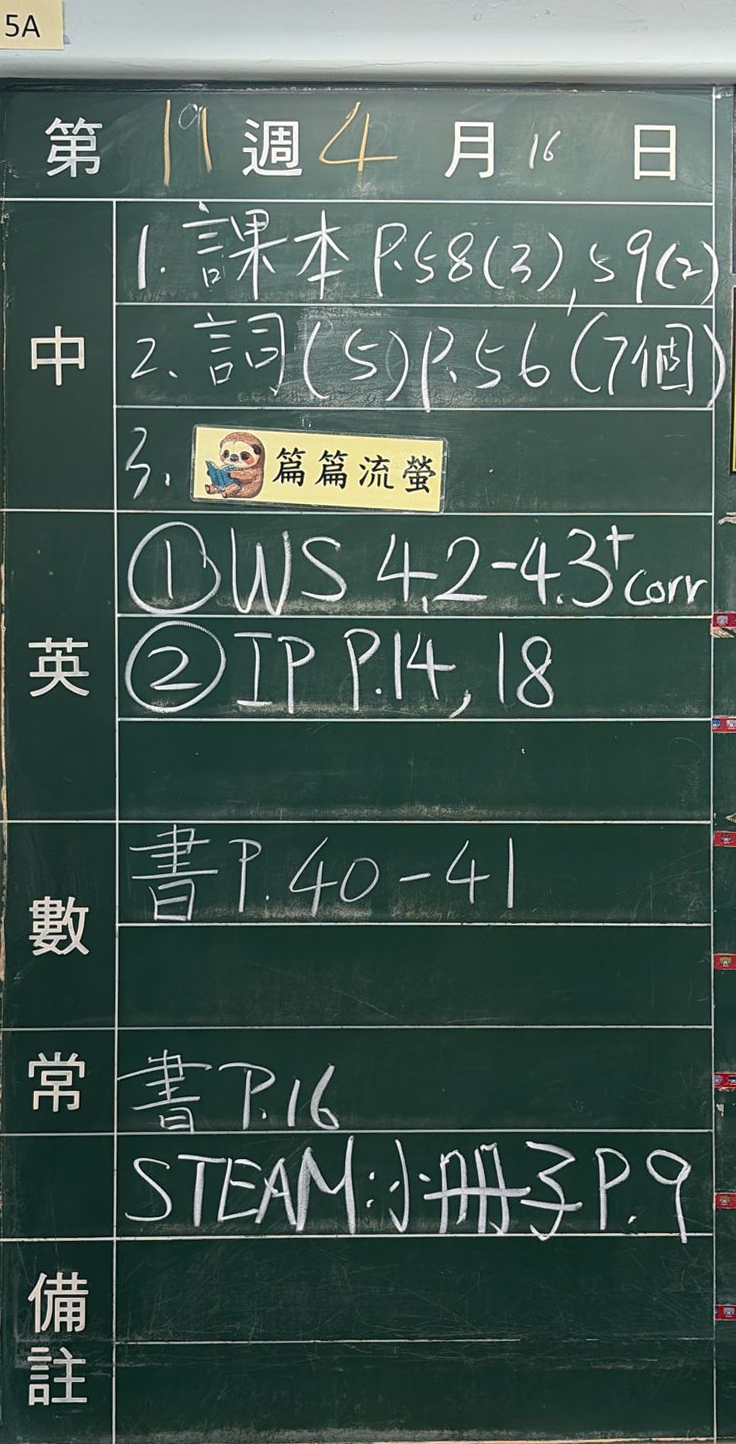 5A
第 19 週 4 月 16 日
中
1. 課本 P.58(3), 59(2)
2. 詞(5) P.56 (7個)
3. 篇篇流螢
英
① WS 4.2-4.3 + corr
② IP P.14, 18
數
書 P.40-41
常
書 P.16
STEAM:小冊子 P.9
備註